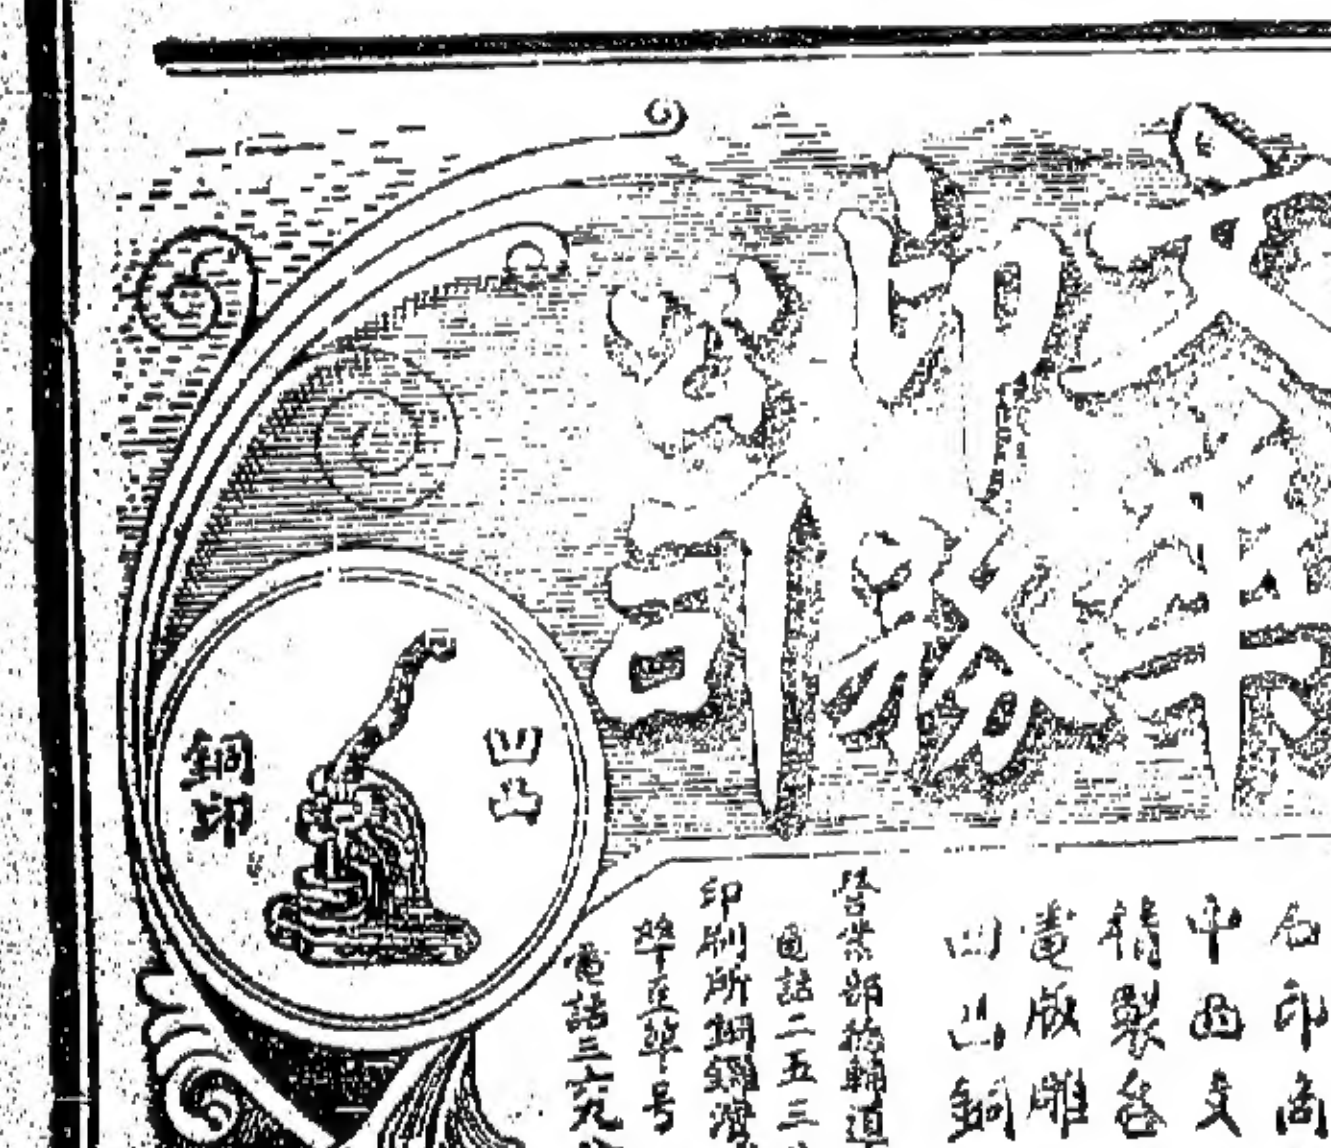 文華
印務
公司
凹凸
銅印
石印商
中西文
精製各
電版雕
凹凸銅
營業部德輔道
電話二五三
印刷所銅鑼灣
号
電話三六九